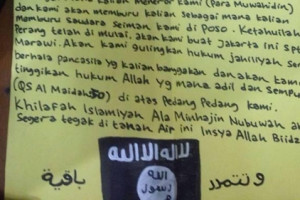 meneror kami (Para Muwahidin)
dan kami akan memburu kalian sebagai mana kalian
memburu saudara seiman kami di Poso. Ketahuilah
Perang telah di mulai, akan kami buat jakarta ini sp
Marawi. Akan kami gulingkan hukum jahiliyah
berhala pancasila yg kalian banggakan dan akan kami
tinggikan hukum Allah yg maha adil dan sempu
(QS Al Maidah 50) di atas Pedang Pedang kami.
Khilafah Islamiyah Ala Minhajin Nubuwah
Segera tegak di tanah Air ini Insya Allah
لا اله الا الله
الله
رسول
باقية
وتتمدد